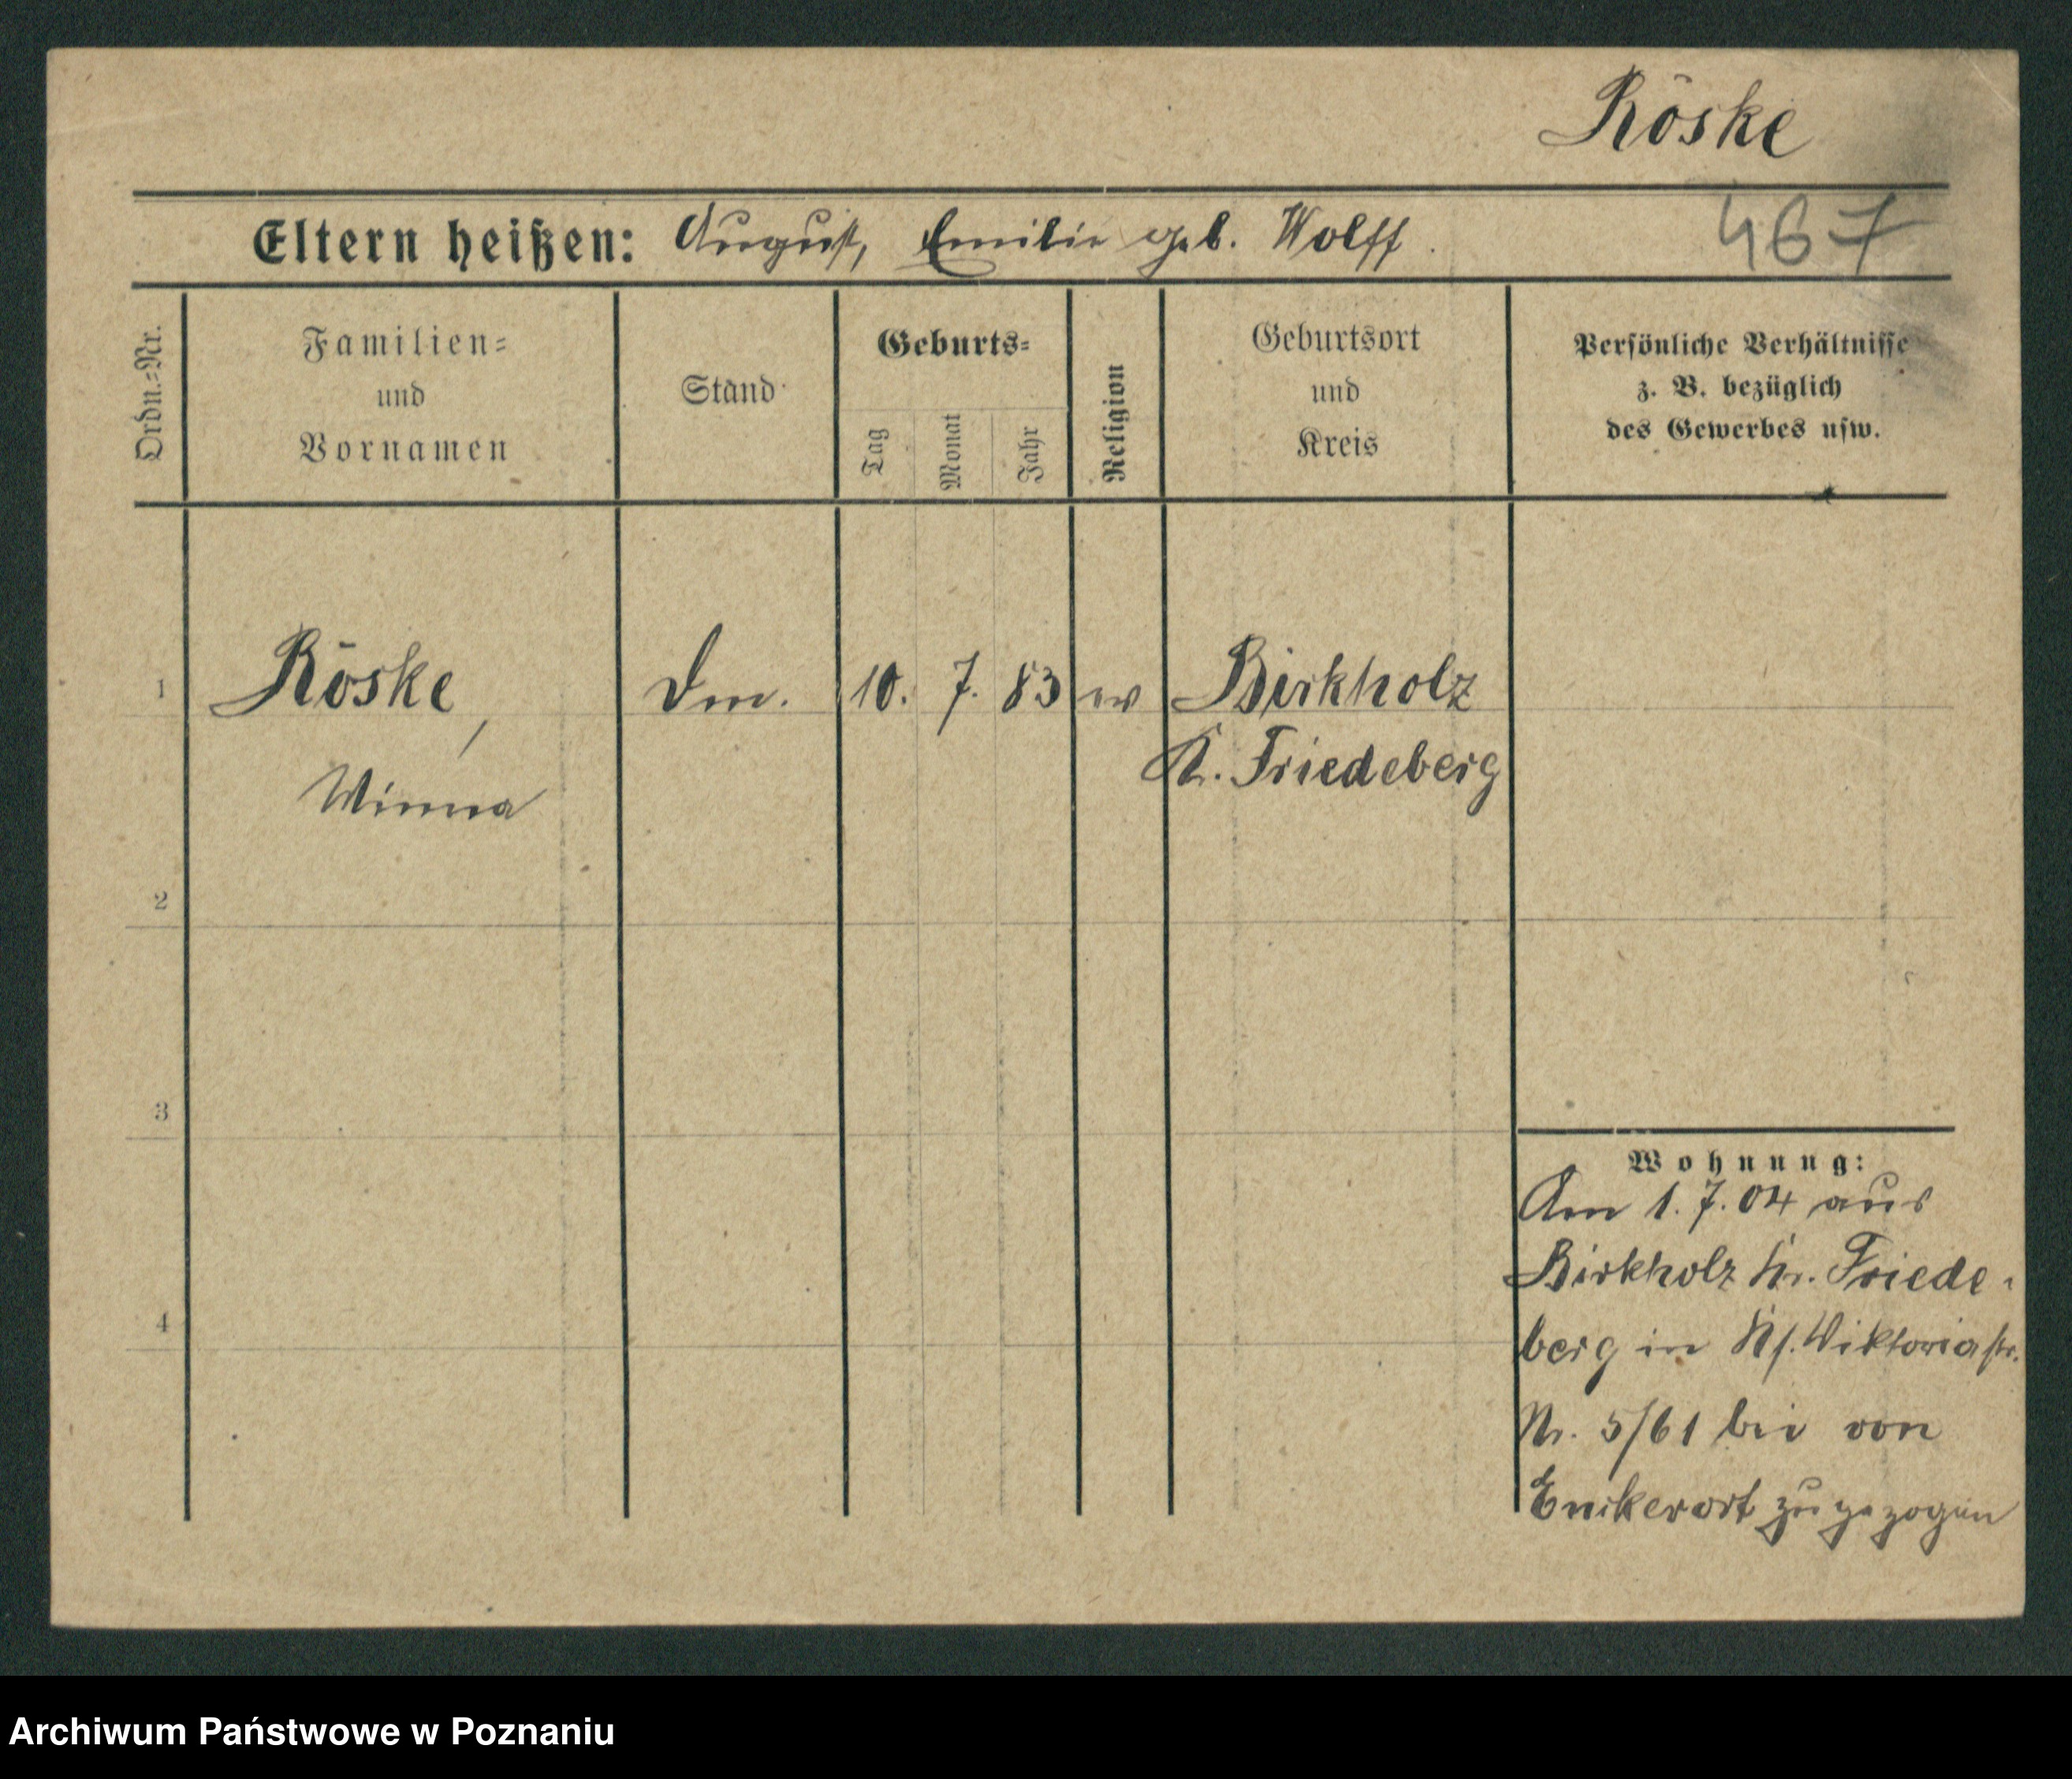 Röske
Eltern heißen: August, Emilie geb. Wolff.
467
Ordn.=Nr.
Familien=
und
Vornamen
Stand
Geburts=
Tag
Monat
Jahr
Religion
Geburtsort
und
Kreis
Persönliche Verhältnisse
z. B. bezüglich
des Gewerbes usw.
1
Röske,
Dm. 10. 7. 83 ev Birkholz
Kr. Friedeberg
2
3
4
Wohnung:
Am 1. 7. 04 aus
Birkholz Kr. Friede-
berg in Viktoriastr.
Nr. 5/61 bei von
zugezogen
Archiwum Państwowe w Poznaniu